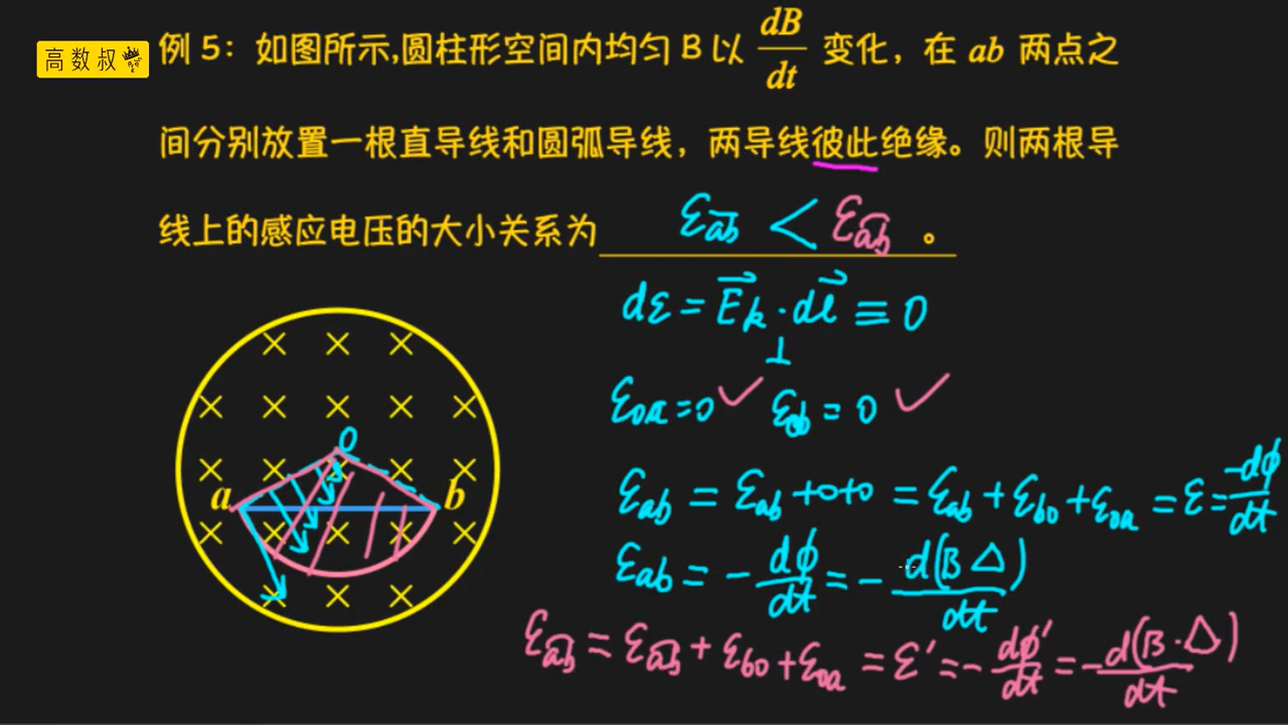 高数叔
例 5：如图所示,圆柱形空间内均匀 B 以 dB/dt 变化，在 ab 两点之
间分别放置一根直导线和圆弧导线，两导线彼此绝缘。则两根导
线上的感应电压的大小关系为 ε_ab < ε_ab 。
dε = E_k · dl ≡ 0
⊥
ε_oa = 0 ✓ ε_ob = 0 ✓
O
a b
ε_ab = ε_ab + 0 + 0 = ε_ab + ε_bo + ε_oa = ε = -dφ/dt
ε_ab = - dφ/dt = - d(B △)/dt
ε_ab = ε_ab + ε_bo + ε_oa = ε′ = - dφ′/dt = - d(B · △)/dt